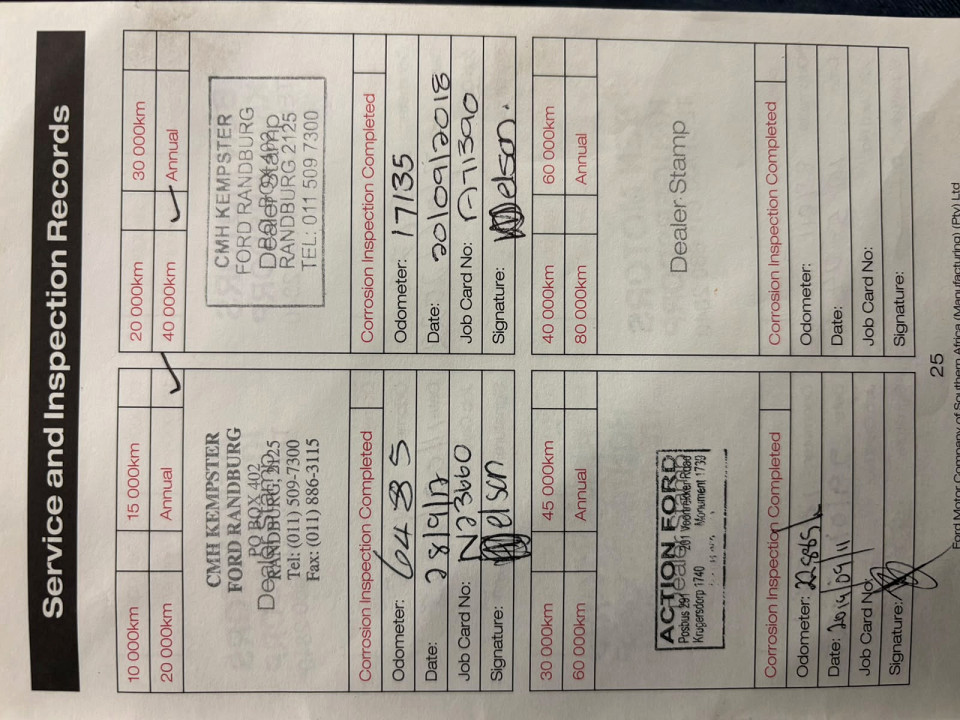 Service and Inspection Records
10 000km 15 000km
20 000km Annual ✓
CMH KEMPSTER
FORD RANDBURG
PO BOX 402
Dealer Stamp
RANDBURG, 2125
Tel: (011) 509-7300
Fax: (011) 886-3115
Corrosion Inspection Completed
Odometer: 6485
Date: 28/9/17
Job Card No: N23660
Signature: Nelson
20 000km 30 000km
40 000km ✓ Annual
CMH KEMPSTER
FORD RANDBURG
PO BOX 402
Dealer Stamp
RANDBURG 2125
TEL: 011 509 7300
Corrosion Inspection Completed
Odometer: 17135
Date: 20/09/2018
Job Card No: A71390
Signature: Nelson.
30 000km 45 000km
60 000km Annual
ACTION FORD
Posbus 291 201 Voortrekker Road
Dealer Stamp
Krugersdorp 1740 Monument 1739
Corrosion Inspection Completed
Odometer:
Date: 2019/09/11
Job Card No:
Signature:
40 000km 60 000km
80 000km Annual
Dealer Stamp
Corrosion Inspection Completed
Odometer:
Date:
Job Card No:
Signature:
25
Ford Motor Company of Southern Africa (Manufacturing) (Pty) Ltd